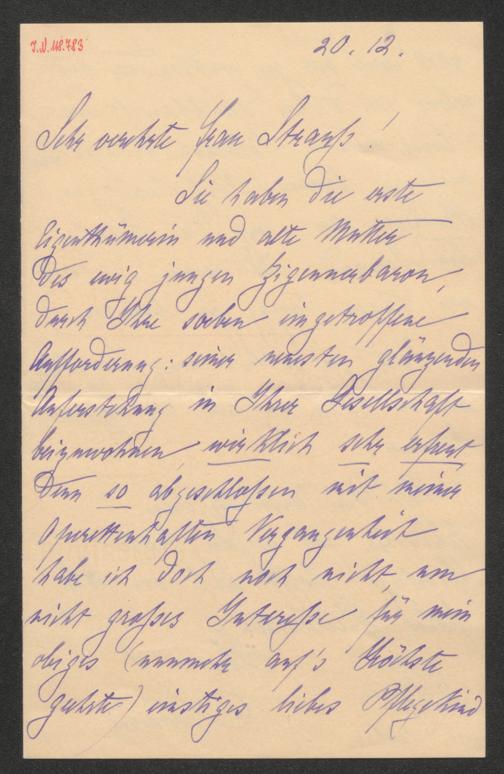 I.N. 118.783
20. 12.
Sehr verehrte Frau Strauß!
Sie haben die erste
Eigenthümerin und alte Mutter
des ewig jungen Zigeunerbaron,
durch Ihre soeben eingetroffene
Aufforderung: seiner neuesten glänzenden
Auferstehung in Ihrer Gesellschaft
beizuwohnen, wirklich sehr erfreut,
denn so abgeschlossen mit meiner
operettenhaften Vergangenheit
habe ich doch noch nicht, um
nicht großes Interesse für mein
obiges (nunmehr auf's Höchste
geehrte) einstiges liebes Pflegekind